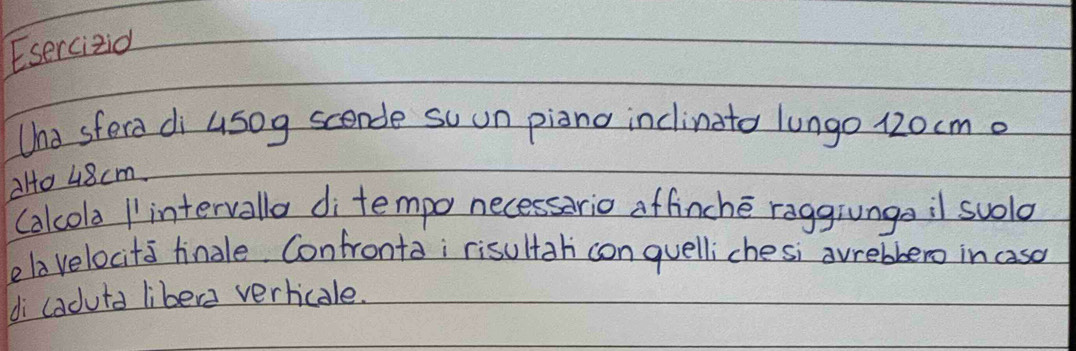 Esercizio
Una sfera di 450g scende su un piano inclinato lungo 120cm e
alto 48cm.
Calcola l'intervallo di tempo necessario affinchè raggiunga il suolo
e la velocità finale. Confronta i risultati con quelli che si avrebbero in caso
di caduta libera verticale.